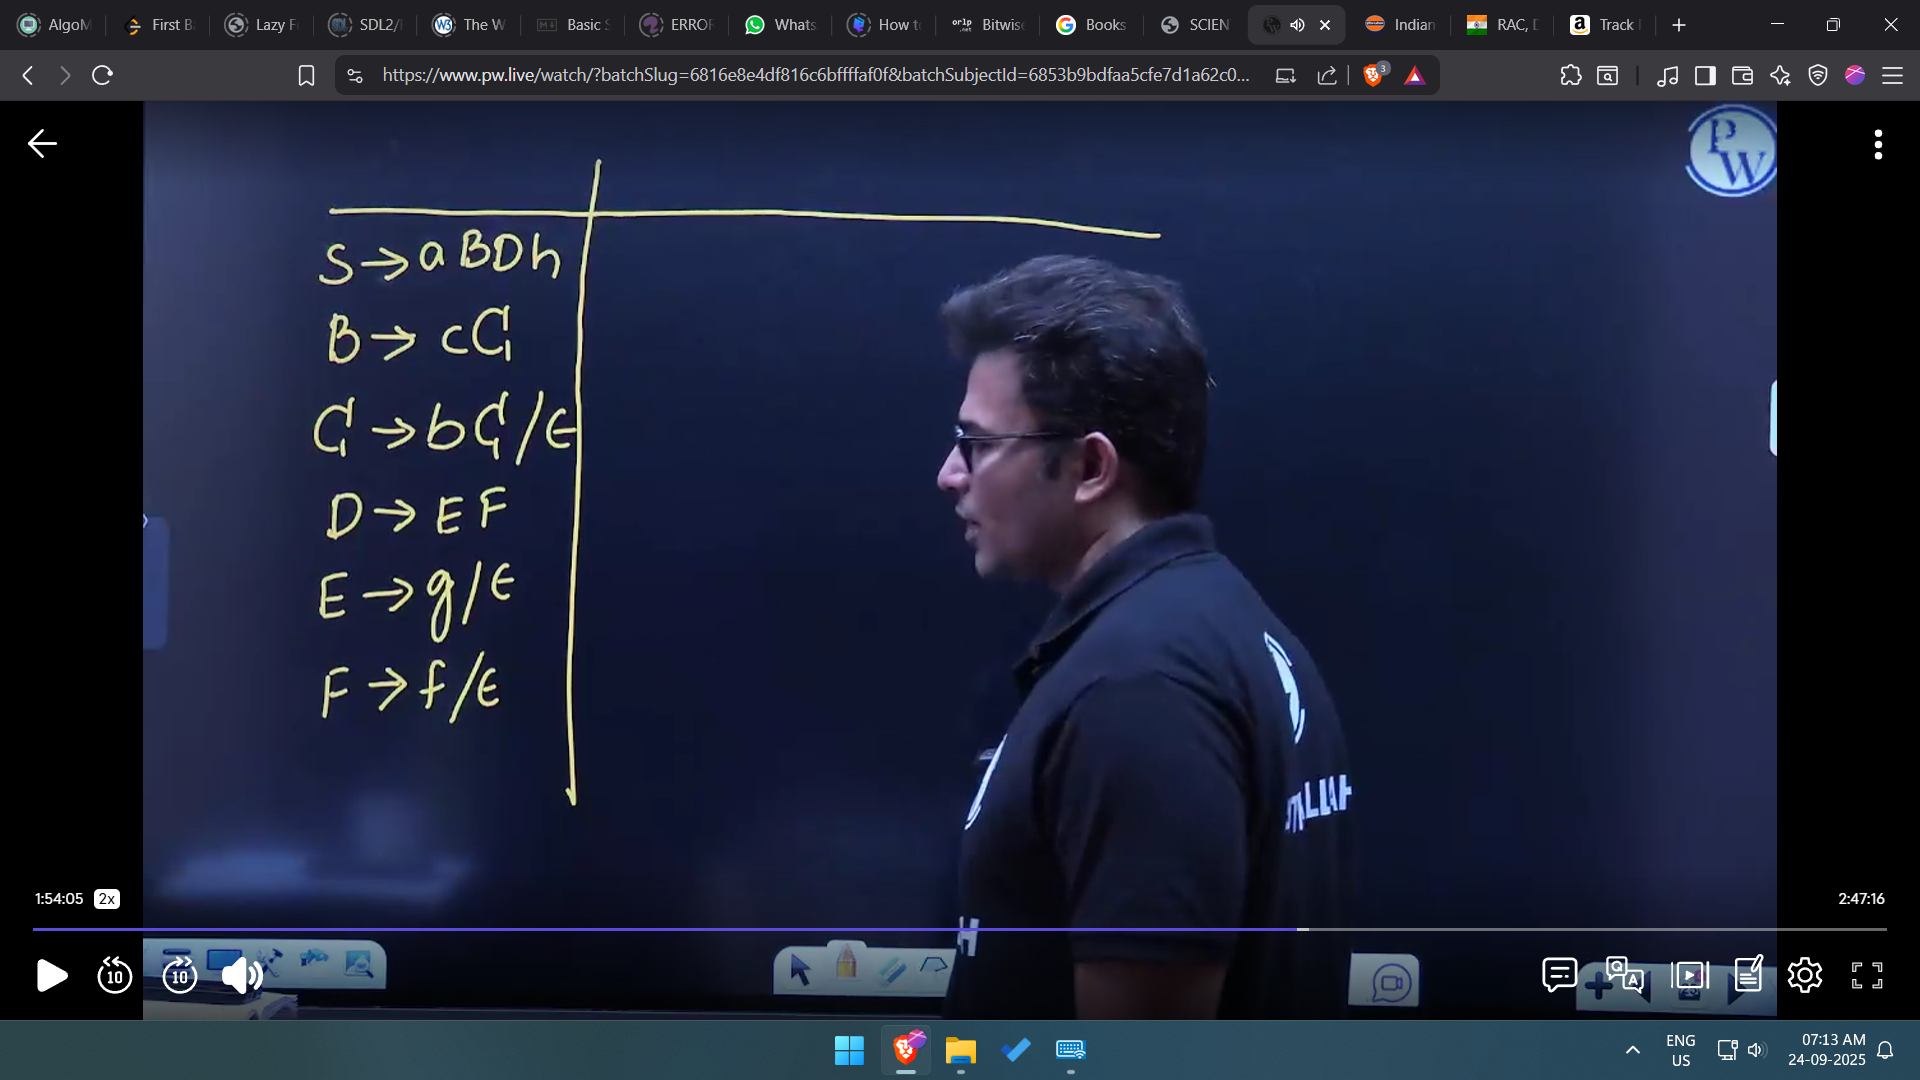 AlgoM First B Lazy F SDL2/ The W Basic S ERROR Whats How t Bitwise Books SCIEN Indian RAC, D Track
https://www.pw.live/watch/?batchSlug=6816e8e4df816c6bffffaf0f&batchSubjectId=6853b9bdfaa5cfe7d1a62c0...
3
PW
S → aBDh
B → cC
C → bC/ε
D → EF
E → g/ε
F → f/ε
1:54:05 2x 2:47:16
10 10
ENG
US
07:13 AM
24-09-2025